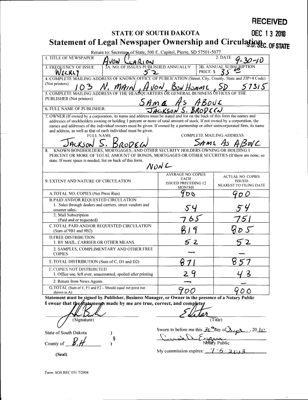 RECEIVED
DEC 13 2010
S.D. SEC. OF STATE
STATE OF SOUTH DAKOTA
Statement of Legal Newspaper Ownership and Circulation
Return to: Secretary of State, 500 E. Capitol, Pierre, SD 57501-5077
1. TITLE OF NEWSPAPER Avon Clarion
2. DATE 9-30-10
3. FREQUENCY OF ISSUE Weekly
3A. NO. OF ISSUES PUBLISHED ANNUALLY 52
3B. ANNUAL SUBSCRIPTION PRICE $ 35
4. COMPLETE MAILING ADDRESS OF KNOWN OFFICE OF PUBLICATION (Street, City, County, State and ZIP+4 Code) (Not printers)
103 N. Main, Avon Bon Homme, SD 57315
5. COMPLETE MAILING ADDRESS OF THE HEADQUARTERS OR GENERAL BUSINESS OFFICES OF THE PUBLISHER (Not printers)
Same As Above
6. FULL NAME OF PUBLISHER: Jackson S. Brodeen
7. OWNER (If owned by a corporation, its name and address must be stated and also immediately
FULL NAME
COMPLETE MAILING ADDRESS
Jackson S. Brodeen
Same As Above
8. KNOWN BONDHOLDERS, MORTGAGEES, AND OTHER SECURITY HOLDERS OWNING OR HOLDING 1 PERCENT OR MORE OF TOTAL AMOUNT OF BONDS, MORTGAGES OR OTHER SECURITIES (If there are none, so state. If more space is needed, list on back of this form)
None
9. EXTENT AND NATURE OF CIRCULATION
AVERAGE NO. COPIES EACH ISSUE DURING PRECEDING 12 MONTHS
ACTUAL NO. COPIES ISSUED NEAREST TO FILING DATE
A. TOTAL NO. COPIES (Net Press Run) 900 900
B. PAID AND/OR REQUESTED CIRCULATION
1. Sales through dealers and carriers, street vendors and counter sales. 54 54
2. Mail Subscription (Paid and/or requested) 765 751
C. TOTAL PAID AND/OR REQUESTED CIRCULATION (Sum of 9B1 and 9B2) 819 805
D. FREE DISTRIBUTION
1. BY MAIL, CARRIER OR OTHER MEANS 52 52
2. SAMPLES, COMPLIMENTARY AND OTHER FREE COPIES
E. TOTAL DISTRIBUTION (Sum of C, D1 and D2) 871 857
F. COPIES NOT DISTRIBUTED
1. Office use, left over, unaccounted, spoiled after printing 29 43
2. Return from News Agents
G. TOTAL (Sum of E, F1 and F2 - Should equal net press run shown in A) 900 900
Statement must be signed by Publisher, Business Manager, or Owner in the presence of a Notary Public
I swear that the statements made by me are true, correct, and complete
(Signature)
Editor
(Title)
State of South Dakota )
County of B.H. ) §
(Seal)
Notary Public
My commission expires:
Form: SOS REC 051 7/2004